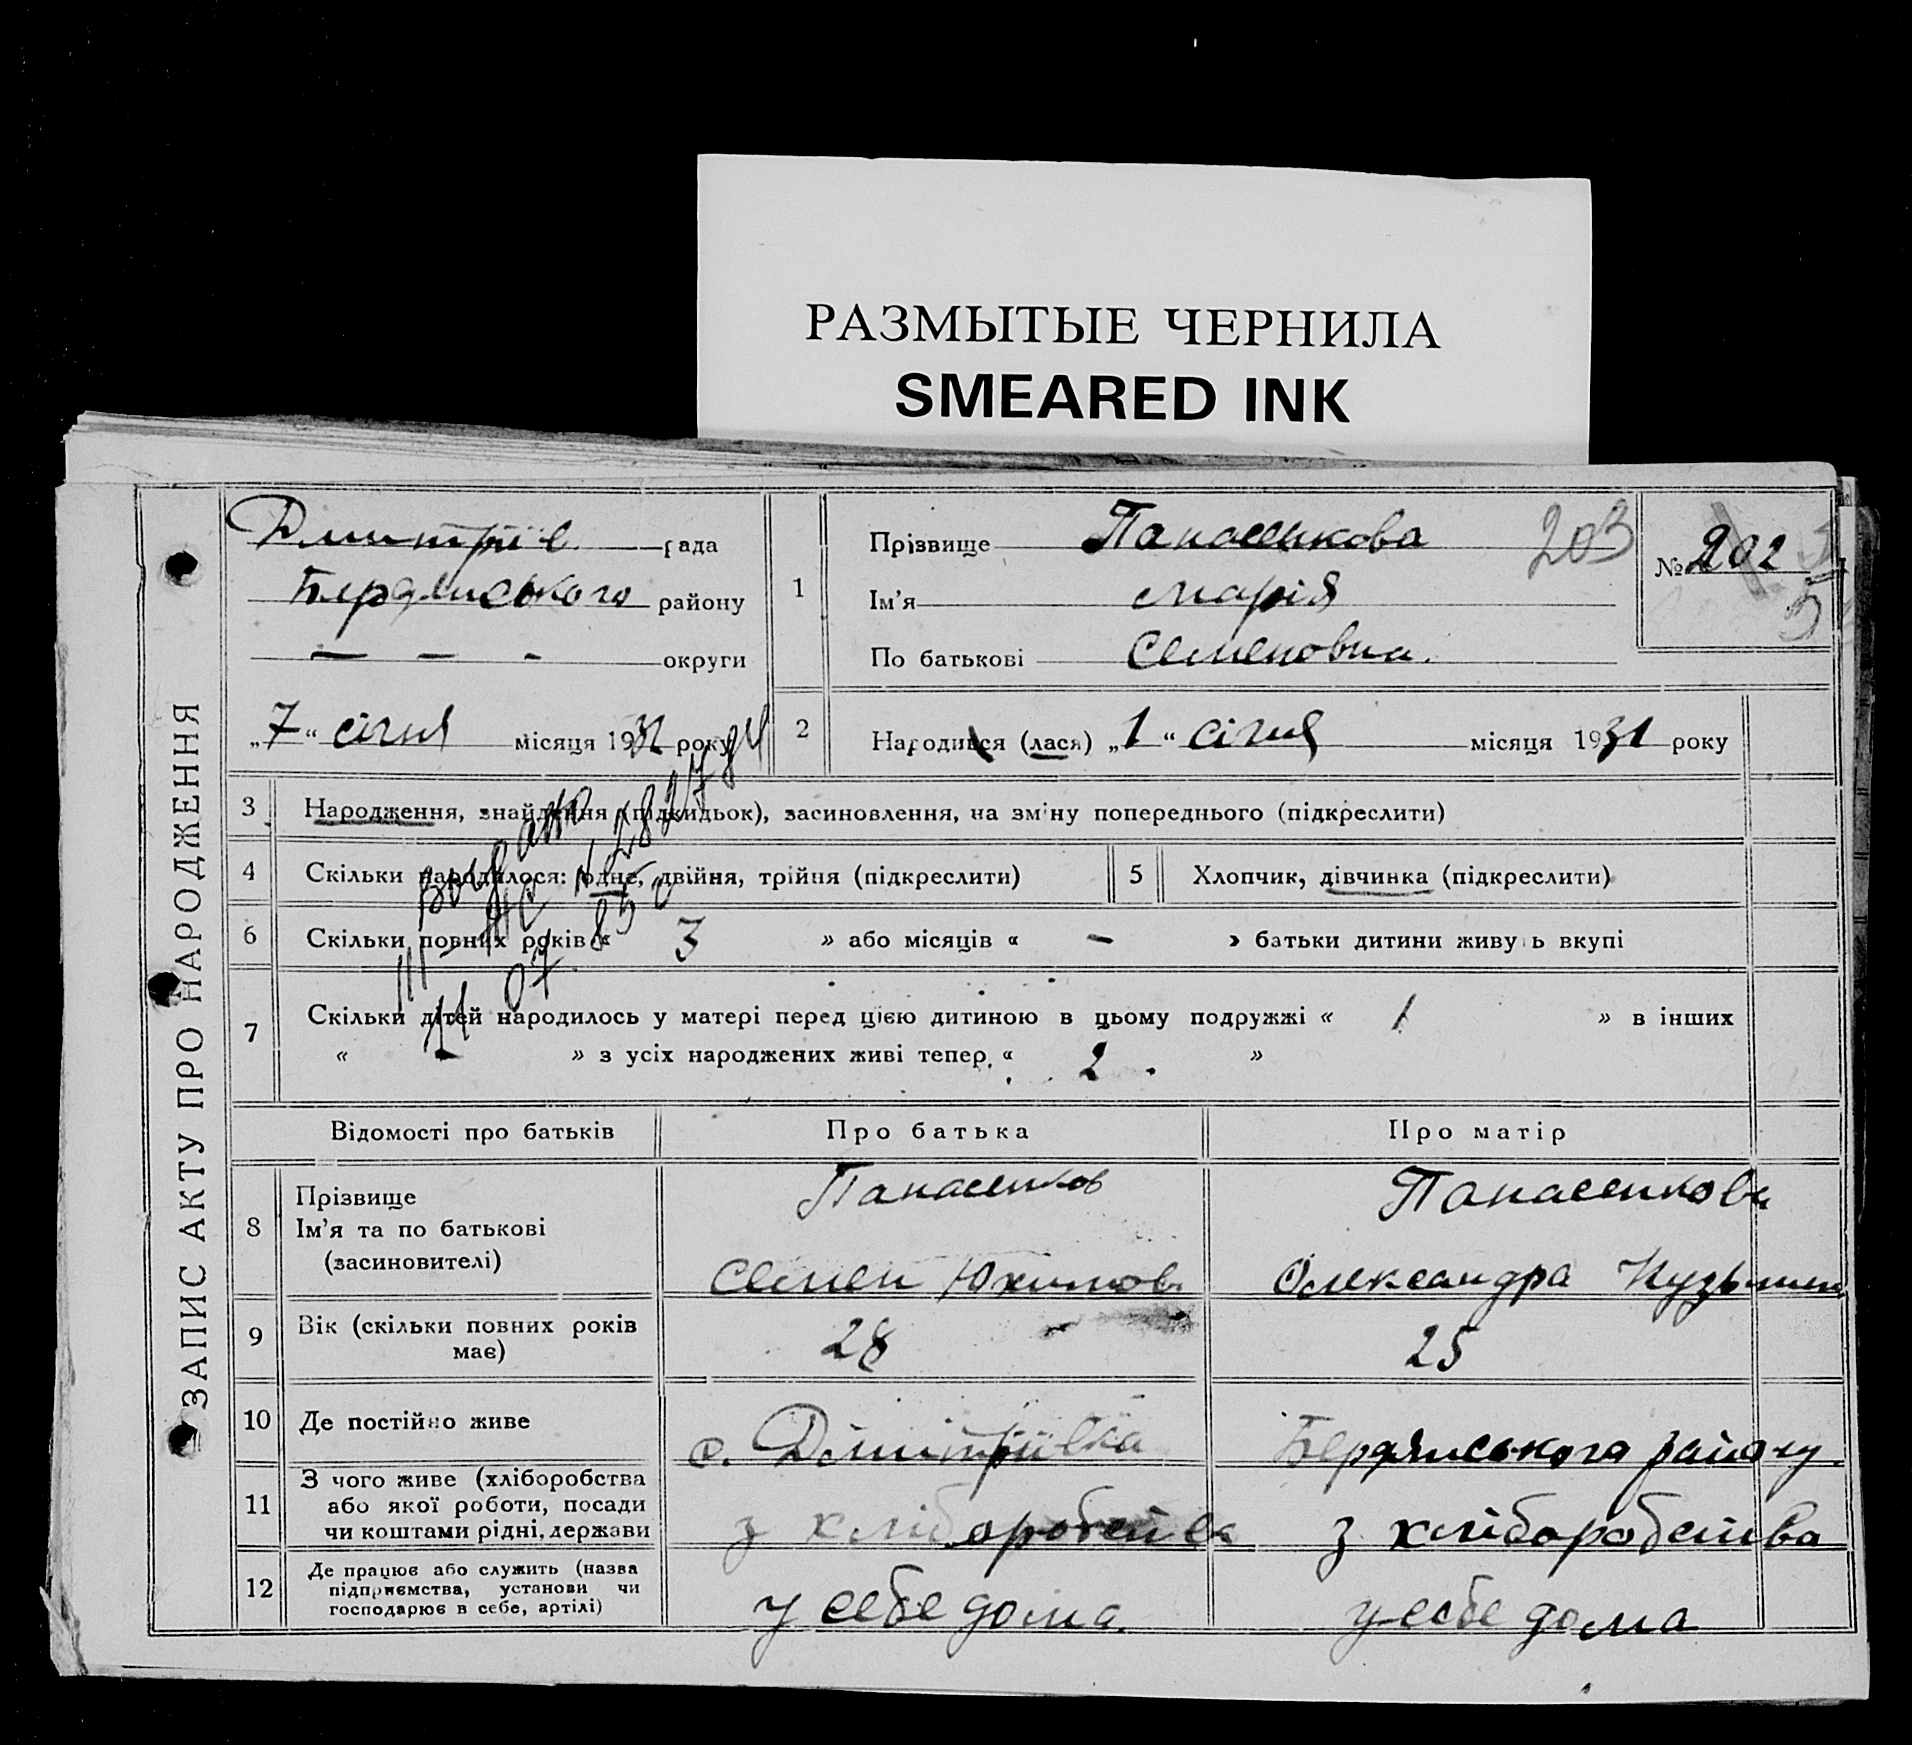 РАЗМЫТЫЕ ЧЕРНИЛА
SMEARED INK
ЗАПИС АКТУ ПРО НАРОДЖЕННЯ
Дмитрів рада
Бердянського району
— — - округи
„7“ січня місяця 1932 року
1
Прізвище Панасенкова 203
Ім'я Марія
По батькові Семеновна.
№ 202
5
2 Народився (лася) „1“ січня місяця 1931 року
3 Народження, знайдення (підкидьок), засиновлення, на зміну попереднього (підкреслити)
4 Скільки народилося: одне, двійня, трійня (підкреслити)
5 Хлопчик, дівчинка (підкреслити)
6 Скільки повних років « 3 » або місяців « - » батьки дитини живуть вкупі
7 Скільки дітей народилось у матері перед цією дитиною в цьому подружжі « 1 » в інших
« - » з усіх народжених живі тепер. « 2 . »
Відомості про батьків Про батька Про матір
8 Прізвище
Ім'я та по батькові
(засиновителі)
Панасенков
Семен Юхимов
Панасенкова
Олександра Кузьмин
9 Вік (скільки повних років
має)
28 25
10 Де постійно живе с. Дмитрівка Бердянського району.
11 З чого живе (хліборобства
або якої роботи, посади
чи коштами рідні, держави
з хліборобства з хліборобства
12 Де працює або служить (назва
підприємства, установи чи
господарює в себе, артілі)
у себе дома. у себе дома